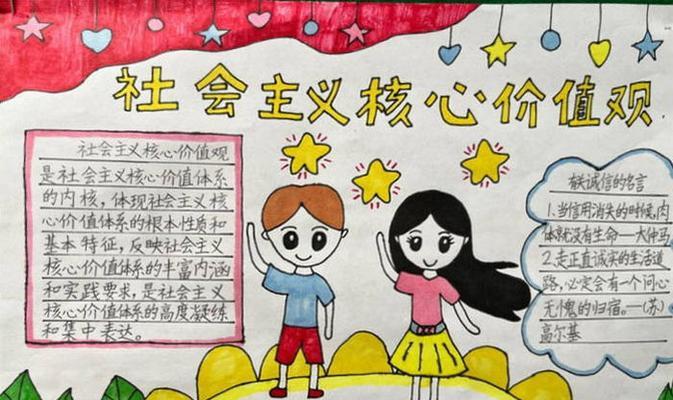 社会主义核心价值观
社会主义核心价值观
是社会主义核心价值体系
的内核，体现社会主义核
心价值体系的根本性质和
基本特征，反映社会主义
核心价值体系的丰富内涵
和实践要求，是社会主义
核心价值体系的高度凝练
和集中表达。
有关诚信的名言
1.当信用消失的时候,肉
体就没有生命—大仲马
2.走正直诚实的生活道
路,必定会有一个问心
无愧的归宿。—(苏)
高尔基